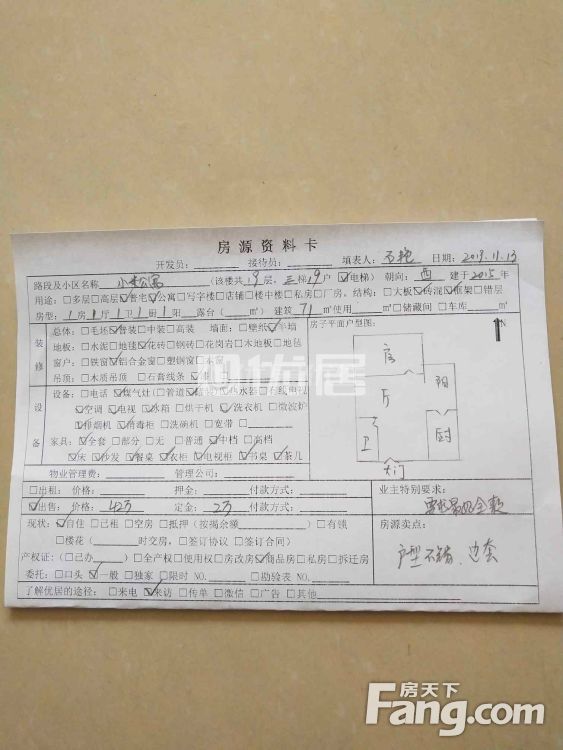 房源资料卡
开发员: 接待员: 填表人: 日期: 2019.11.13
路段及小区名称 小松公寓 (该楼共19层, 三梯19户 ☑电梯) 朝向: 西 建于2015年
用途: □多层□高层☑普宅☑公寓□写字楼□店铺□楼中楼□私房□厂房。结构: □大板☑砖混☑框架□错层
房型: 1房1厅1卫1厨1阳 露台(㎡) 建筑71㎡使用㎡ □储藏间 □车库㎡
装修
总体: □毛坯☑普装□中装□高装 墙面: □壁纸
房子平面户型图:
N
地板: □水泥□地毯☑花砖□钢砖□花岗岩□木地板□地毡
窗户: □铁窗☑铝合金窗□塑钢窗
吊顶: □木质吊顶 □石膏线条
设备
设备: □电话 ☑煤气灶 (□管道 ☑热水器□有线电视
☑空调 ☑电视 ☑冰箱 □烘干机 ☑洗衣机 □微波炉
☑排烟机 ☑消毒柜 □洗碗机 □宽带 □
家具: ☑全套 □部分 □无 □普通 ☑中档 □高档
☑床 ☑沙发 ☑餐桌 ☑衣柜 ☑电视柜 ☑书桌 ☑茶几
房
厅
阳
卫
厨
大门
物业管理费: 管理公司:
□出租: 价格: 押金: 付款方式:
业主特别要求:
☑出售: 价格: 423 定金: 23 付款方式:
最好全款
现状: ☑自住 □已租 □空房 □抵押 (按揭余额) □有锁
房源卖点:
□楼花 (时交房, □签订协议 □签订合同)
户型不错、边套
产权证: (□已办) □全产权□使用权□房改房☑商品房□私房□拆迁房
委托: □口头 ☑一般 □独家 □限时 NO. □勘验表 NO.
了解优居的途径: □来电 ☑来访 □传单 □微信 □广告 □其他
优居
房天下
Fang.com